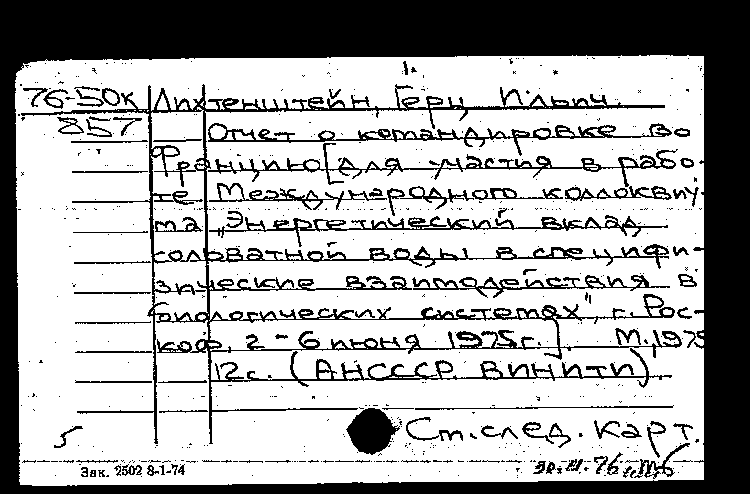 1.
76-50к Лихтенштейн, Герц Ильич.
857 Отчет о командировке во
Францию [для участия в рабо-
те Международного коллоквиу-
ма „Энергетический вклад
сольватной воды в специфи-
ческие взаимодействия в
биологических системах", г. Рос-
коф, 2-6 июня 1975г.]. М., 1975
12с. (АН СССР. ВИНИТИ).
5 См. след. карт.
Зак. 2502 8-1-74
76